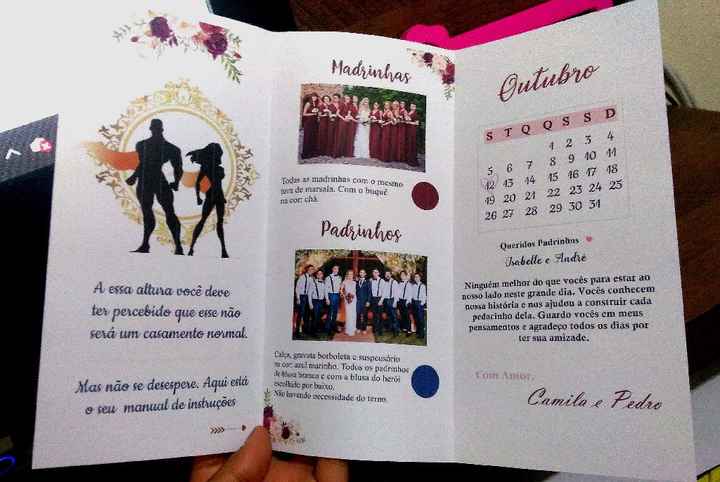 A essa altura você deve
ter percebido que esse não
será um casamento normal.
Mas não se desespere. Aqui está
o seu manual de instruções
Madrinhas
Todas as madrinhas com o mesmo
tom de marsala. Com o buquê
na cor: chá.
Padrinhos
Calça, gravata borboleta e suspensório
na cor: azul marinho. Todos os padrinhos
de blusa branca e com a blusa do herói
escolhido por baixo.
Não havendo necessidade do terno.
Outubro
S T Q Q S S D
1 2 3 4
5 6 7 8 9 10 11
12 13 14 15 16 17 18
19 20 21 22 23 24 25
26 27 28 29 30 31
Queridos Padrinhos
Isabelle e André
Ninguém melhor do que vocês para estar ao
nosso lado neste grande dia. Vocês conhecem
nossa história e nos ajudou a construir cada
pedacinho dela. Guardo vocês em meus
pensamentos e agradeço todos os dias por
ter sua amizade.
Com Amor,
Camila e Pedro